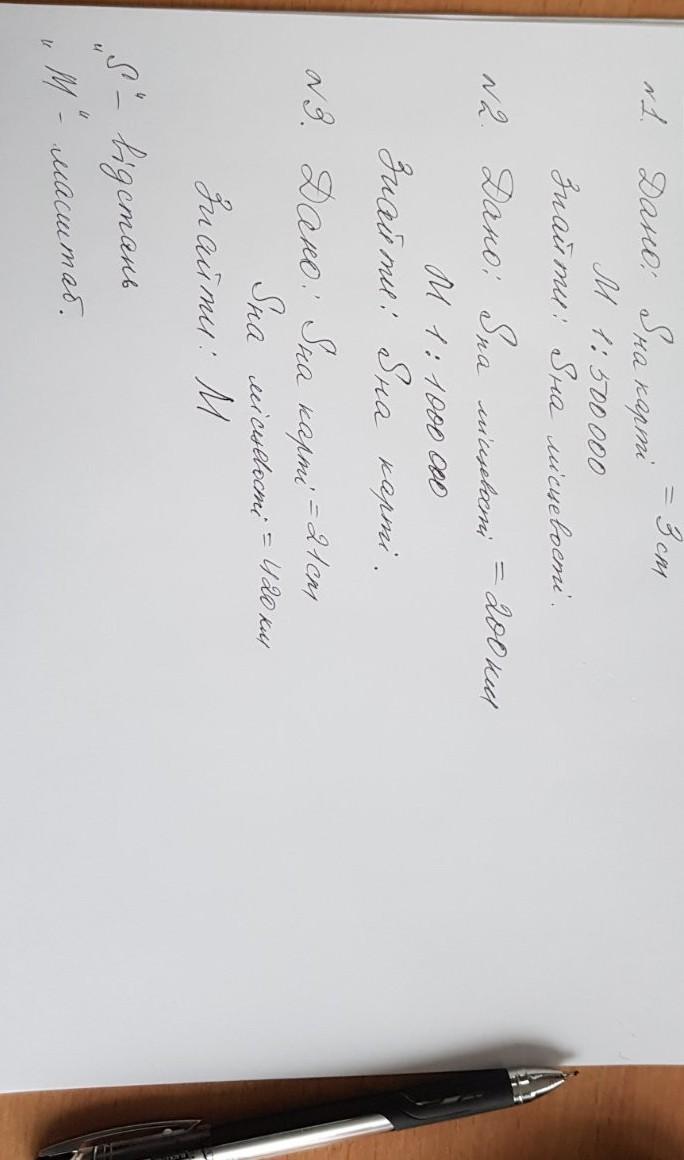 №1. Дано: Sна карті = 3 cm
М 1:500 000
Знайти: Sна місцевості.
№2. Дано: Sна місцевості = 200 км
М 1:1000 000
Знайти: Sна карті.
№3. Дано: Sна карті = 21 cm
Sна місцевості = 420 км
Знайти: М
„S“ - відстань
„М“ - масштаб.